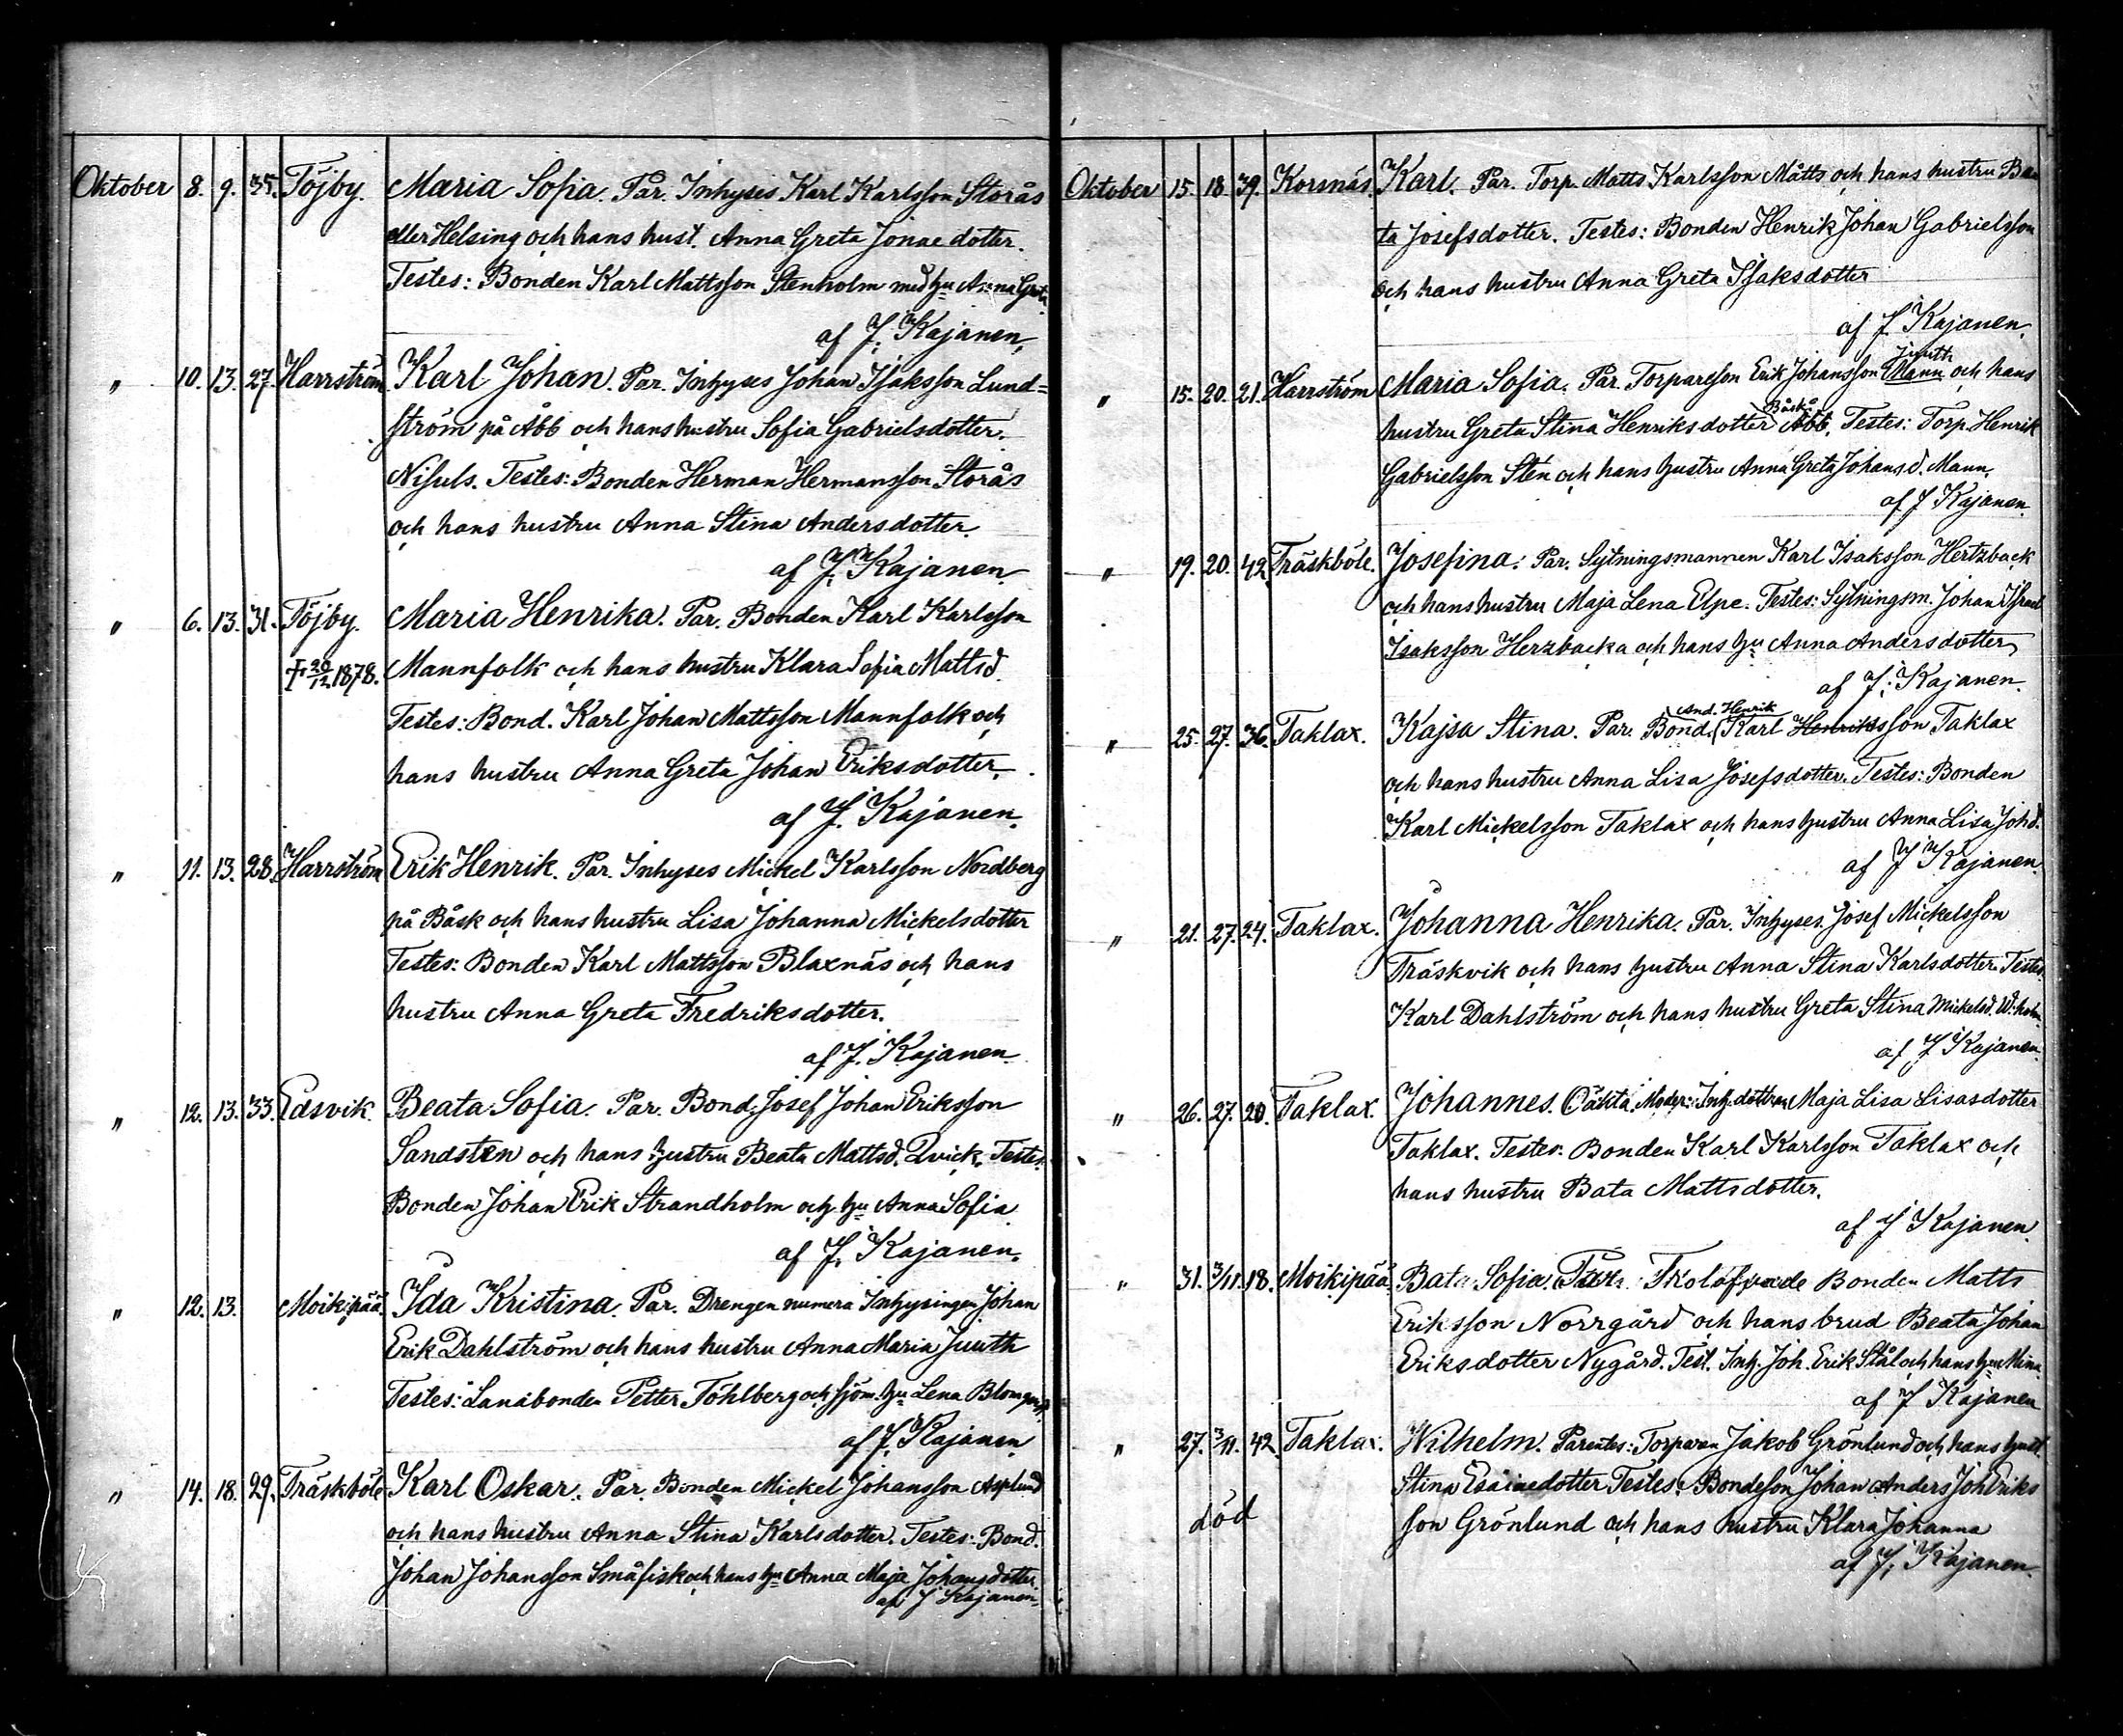 Oktober 8. 9. 35. Töjby. Maria Sofia. Par. Inhyses Karl Karlsson Storås
eller Helsing och hans hust. Anna Greta Jonae dotter.
Testes: Bonden Karl Mattsson Stenholm med hu Anna Greta
af J. Kajanen.
" 10. 13. 27. Harrström Karl Johan. Par. Inhyses Johan Isaksson Lund=
ström på Åbb och hans hustru Sofia Gabrielsdotter
Nisuls. Testes: Bonden Herman Hermansson Storås
och hans hustru Anna Stina Andersdotter.
af J. Kajanen.
" 6. 13. 31. Töjby. Maria Henrika. Par. Bonden Karl Karlsson
† 20/12 1878. Mannfolk och hans hustru Klara Sofia Mattsd.
Testes: Bond. Karl Johan Mattsson Mannfolk och
hans hustru Anna Greta Johan Eriksdotter.
af J. Kajanen.
" 11. 13. 28. Harrström Erik Henrik. Par. Inhyses Mickel Karlsson Nordberg
på Båsk och hans hustru Lisa Johanna Mickelsdotter
Testes: Bonden Karl Mattsson Blaxnäs och hans
hustru Anna Greta Fredriksdotter.
af J. Kajanen.
" 12. 13. 33. Edsvik Beata Sofia. Par. Bond. Josef Johan Eriksson
Sandsten och hans hustru Beata Mattsd. Qvick. Testes.
Bonden Johan Erik Strandholm och hu Anna Sofia
af J. Kajanen.
" 12. 13. Moikipää. Ida Kristina. Par. Drengen numera Inhysingen Johan
Erik Dahlström och hans hustru Anna Maria Juuth
Testes: Landbonden Petter Föhlberg och sjöm. hu Lena
af J. Kajanen
" 14. 18. 29. Träskböle Karl Oskar. Par. Bonden Mickel Johansson Asplund
och hans hustru Anna Stina Karlsdotter. Testes: Bond.
Johan Johansson Småfisk och hans hu Anna Maja Johansdotter
af J Kajanen.
Oktober 15. 18. 39. Korsnäs. Karl. Par. Torp. Matts Karlsson Mätts och hans hustru Bea
ta Josefsdotter. Testes: Bonden Henrik Johan Gabrielsson
och hans hustru Anna Greta Isaksdotter
af J. Kajanen.
Juuth
" 15. 20. 21. Harrström Maria Sofia. Par. Torpareson Erik Johansson Mann och hans
Båsk
hustru Greta Stina Henriksdotter Åbb. Testes: Torp. Henrik
Gabrielsson Sten och hans hustru Anna Greta Johansd. Mann.
af J Kajanen.
" 19. 20. 42. Träskböle. Josefina. Par. Sytningsmannen Karl Isaksson Hertzback
och hans hustru Maja Lena Elpe. Testes: Sytningsm. Johan Israel
Isaksson Herzbacka och hans hu Anna Andersdotter
af J. Kajanen.
And. Henrik
" 25. 27. 36. Taklax. Kajsa Stina. Par. Bond. Karl Henriksson Taklax
och hans hustru Anna Lisa Josefsdotter. Testes: Bonden
Karl Mickelsson Taklax och hans hustru Anna Lisa Johd.
af J Kajanen.
" 21. 27. 24. Taklax. Johanna Henrika. Par. Inhyses Josef Mickelsson
Träskvik och hans hustru Anna Stina Karlsdotter. Testes
Karl Dahlström och hans hustru Greta Stina Mickelsd.
af J Kajanen.
" 26. 27. 20. Taklax. Johannes. Oäkta. Moder: Inh. dottren Maja Lisa Lisasdotter
Taklax. Testes: Bonden Karl Karlsson Taklax och
hans hustru Bata Mattsdotter.
af J Kajanen.
" 31. 3/11. 18. Moikipää. Bata Sofia. Par. Trolofvade Bonden Matts
Eriksson Norrgård och hans brud Beata Johan
Eriksdotter Nygård. Test. Inh. Joh. Erik Stål och hans hu Mina
af J Kajanen
" 27. 3/11. 42. Taklax. Wilhelm. Parentes: Torparen Jakob Grönlund och hans hust
Stina Esaiaedotter Testes: Bondeson Johan Anders Joh Eriks
död
son Grönlund och hans hustru Klara Johanna
af J. Kajanen.